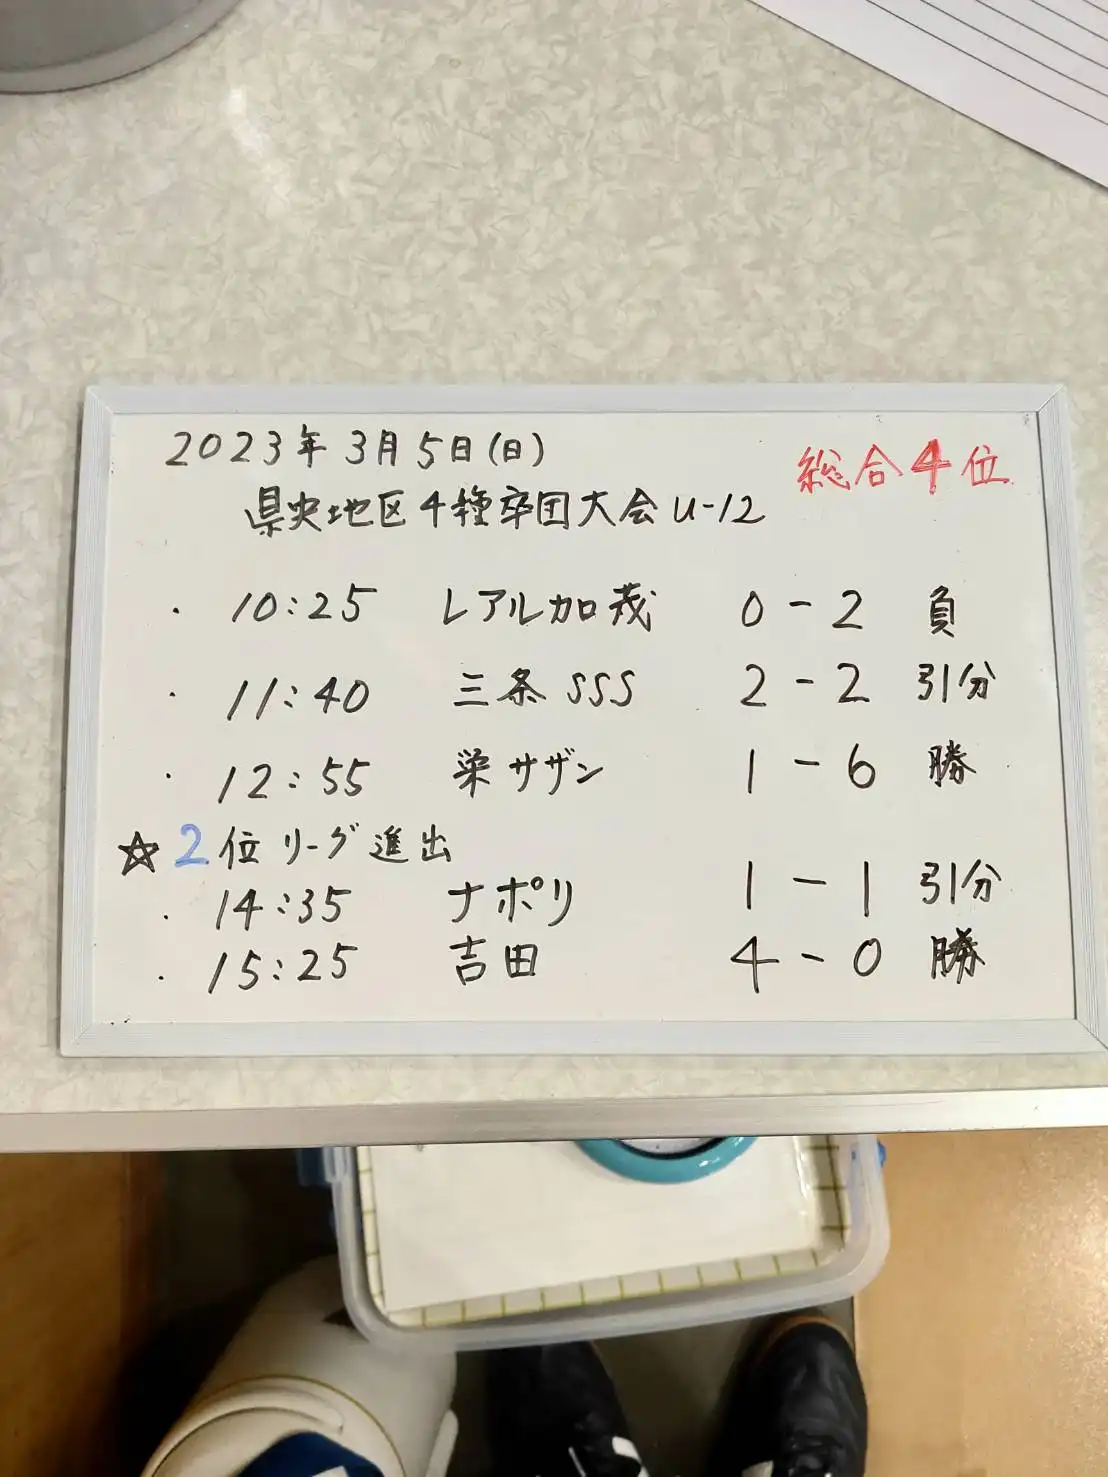 2023年3月5日(日)
総合4位
県央地区4種卒団大会 U-12
・ 10:25 レアル加茂 0-2 負
・ 11:40 三条SSS 2-2 引分
・ 12:55 栄サザン 1-6 勝
☆2位リーグ進出
・ 14:35 ナポリ 1-1 引分
・ 15:25 吉田 4-0 勝